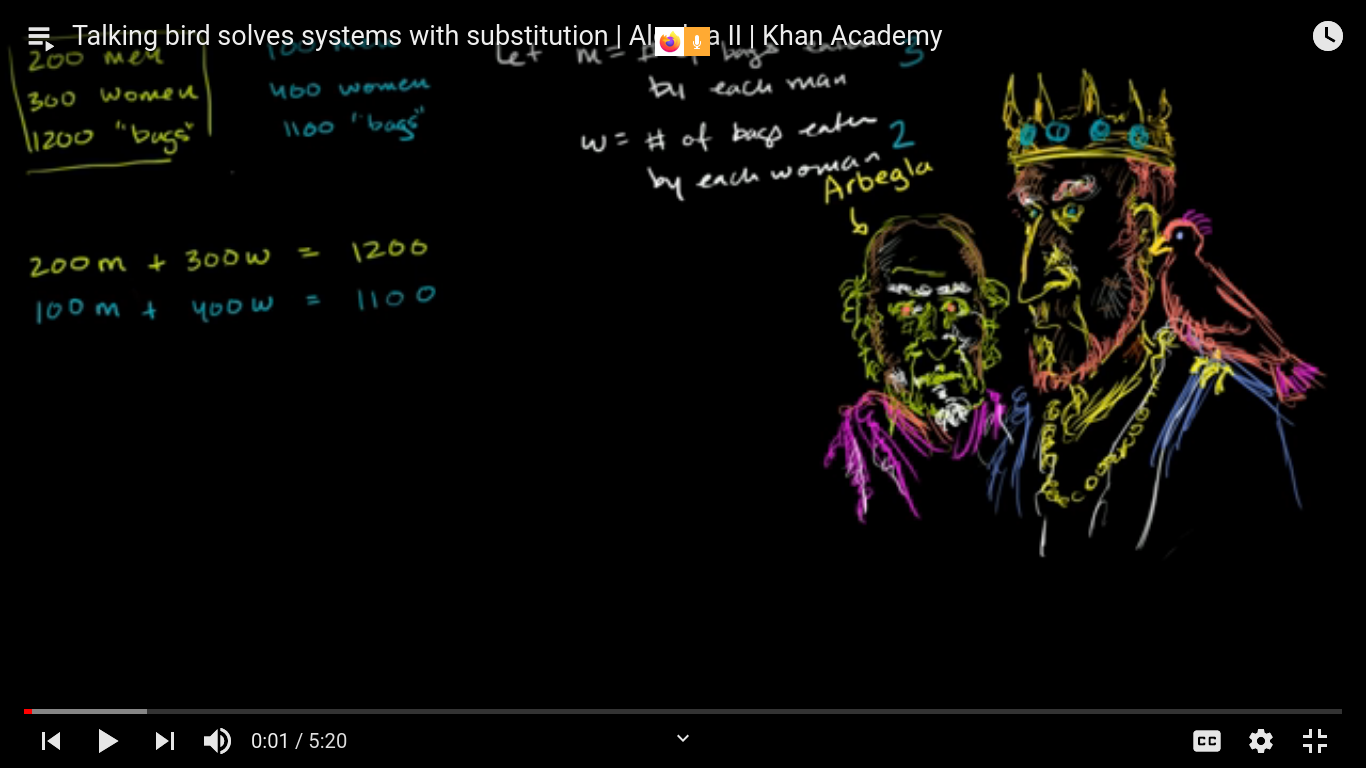 Talking bird solves systems with substitution | Al a II | Khan Academy
200 men
300 women
1200 "bags"
100 men
400 women
1100 "bags"
Let m = # of bags eaten 3
by each man
w = # of bags eaten 2
by each woman
Arbegla
200m + 300w = 1200
100m + 400w = 1100
0:01 / 5:20
CC